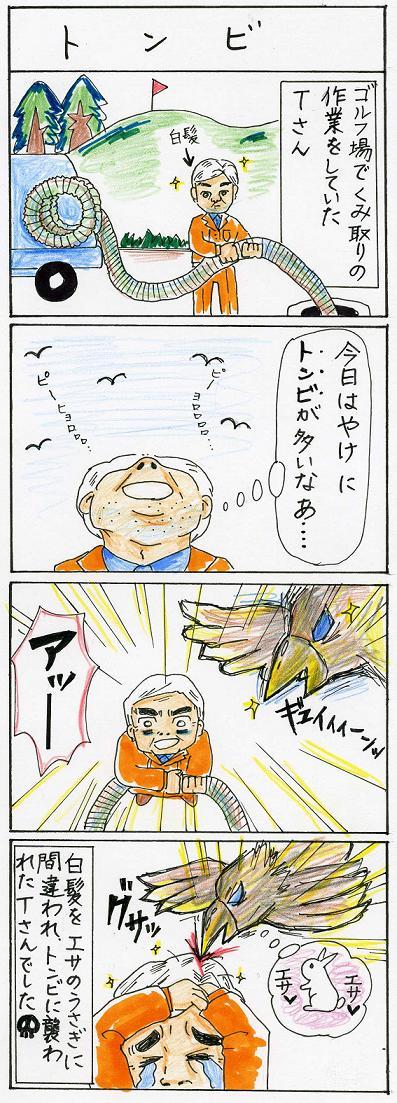 トンビ
ゴルフ場でくみ取りの
作業をしていた
Tさん
白髪
今日はやけに
トンビが多いなあ…
ピーヒョロロロ…
ピーヒョロロロロ…
ギュイィィーンッ
アッー
グサッ
エサ
エサ
白髪をエサのうさぎに
間違われ、トンビに襲わ
れたTさんでした